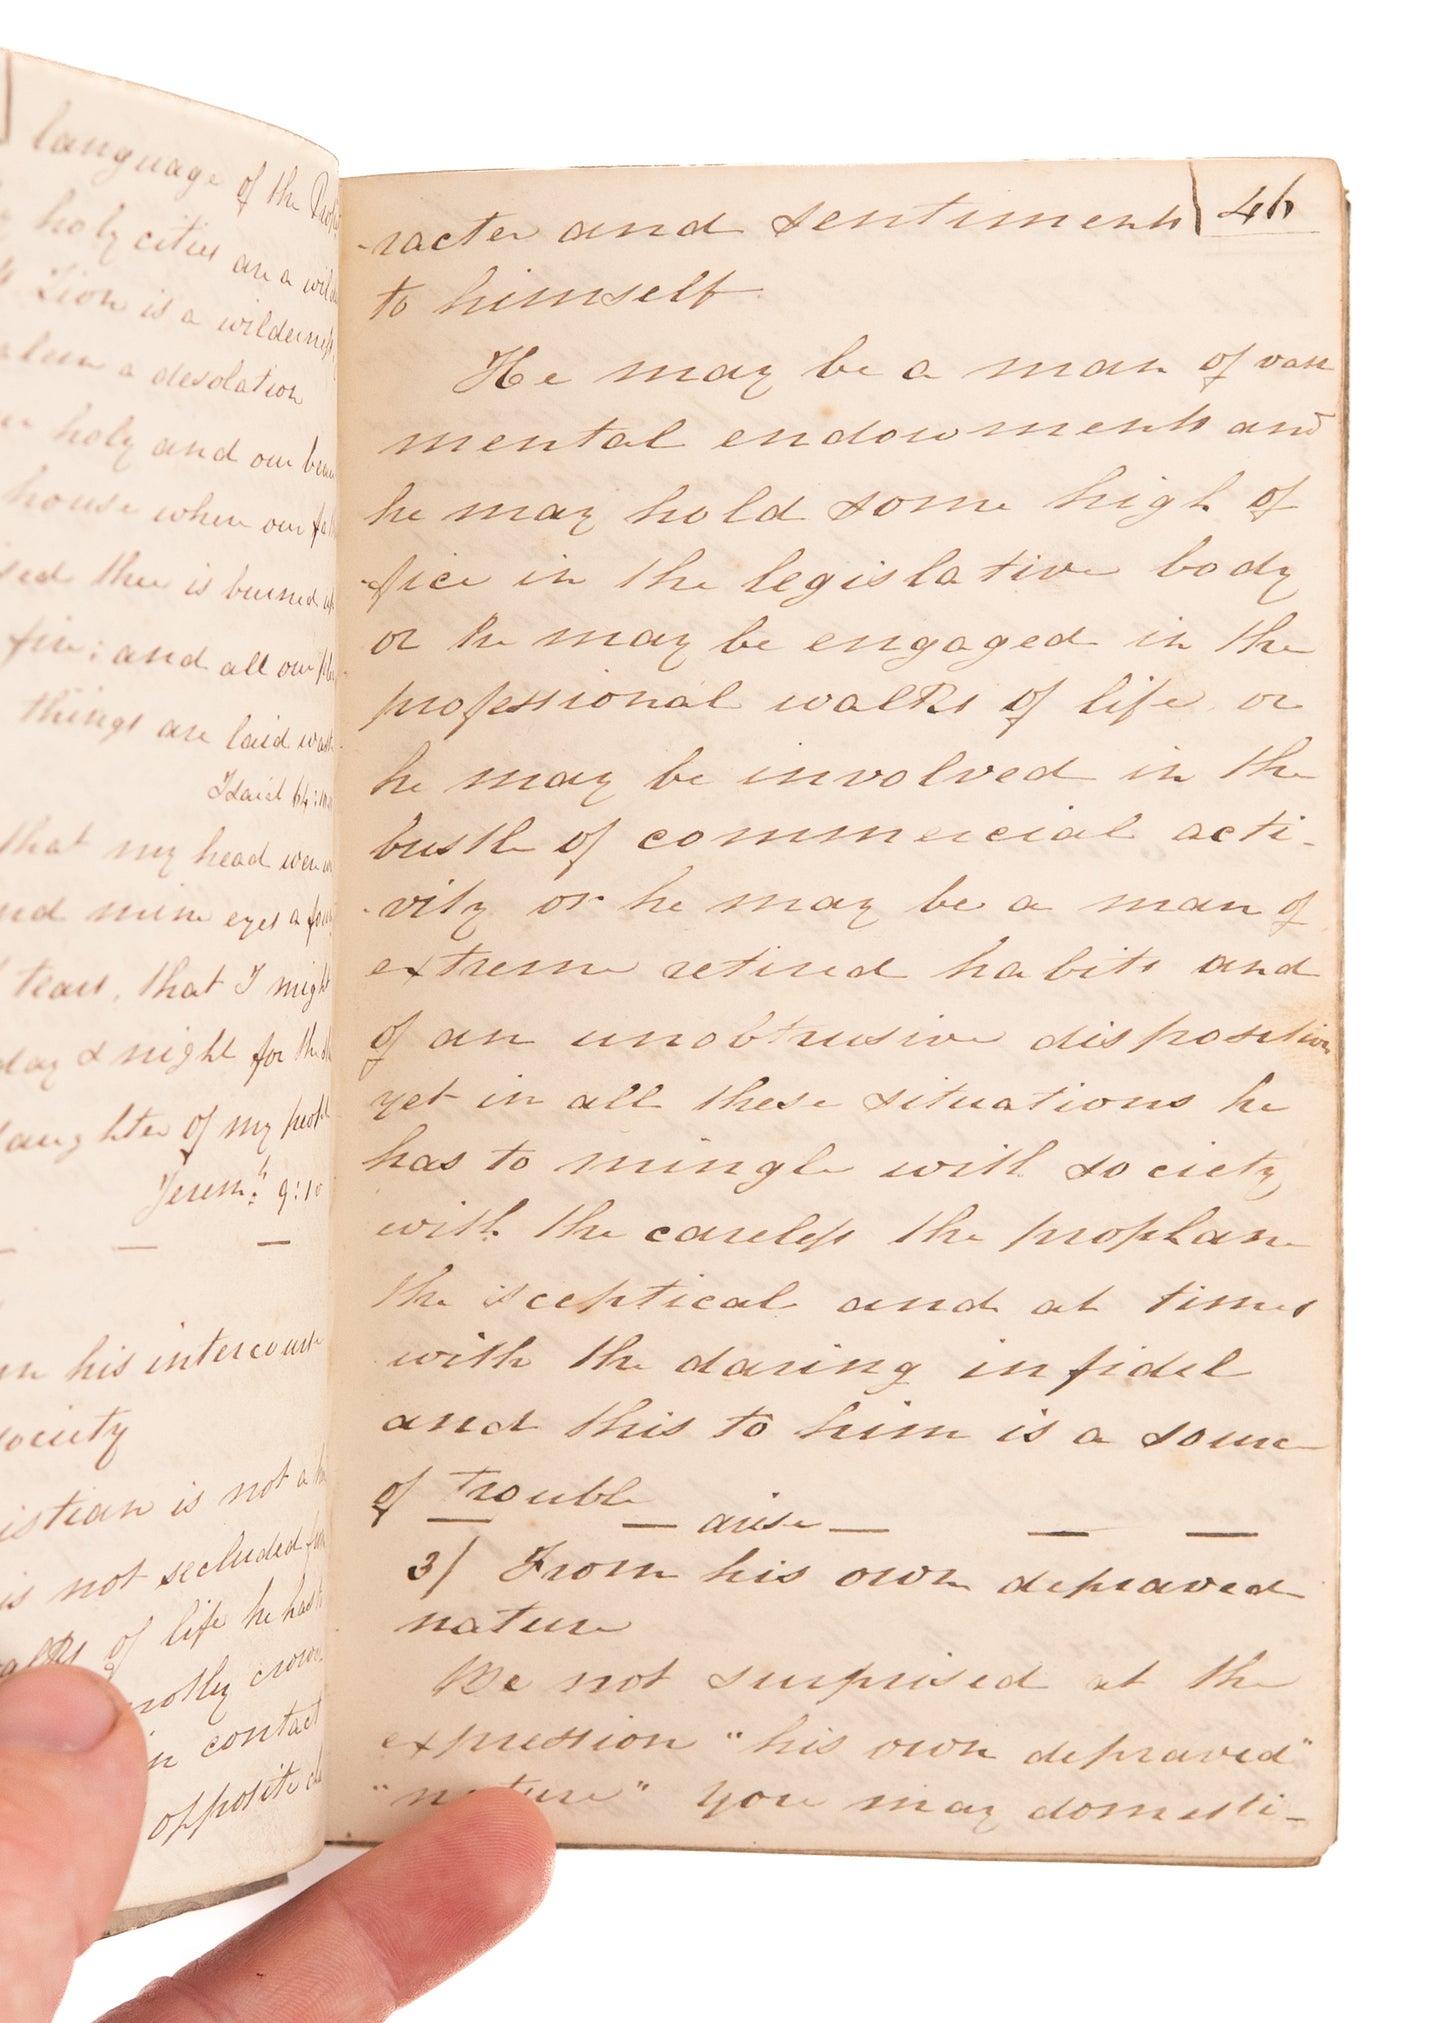 language of the
holy cities are a
Zion is a wilderness
a desolation
holy and our
house when our
thee is burned
fire; and all our
things are laid
Isaiah 64:
that my head were
mine eyes a
tears, that I might
day & night for the
daughter of my
Jerem.h 9:10
his intercourse
society
is not a
is not secluded
walks of life he
motley
in contact
opposite
46
-racter and sentiments
to himself
He may be a man of vast
mental endowments and
he may hold some high of
-fice in the legislative body
or he may be engaged in the
professional walks of life or
he may be involved in the
bustle of commercial acti-
-vity or he may be a man of
extreme retired habits and
of an unobtrusive disposition
yet in all these situations he
has to mingle with society
with the careless the prophane
the sceptical and at times
with the daring infidel
and this to him is a source
of trouble
arise
3/ From his own depraved
nature
Be not surprised at the
expression "his own depraved"
"nature" you may domesti-